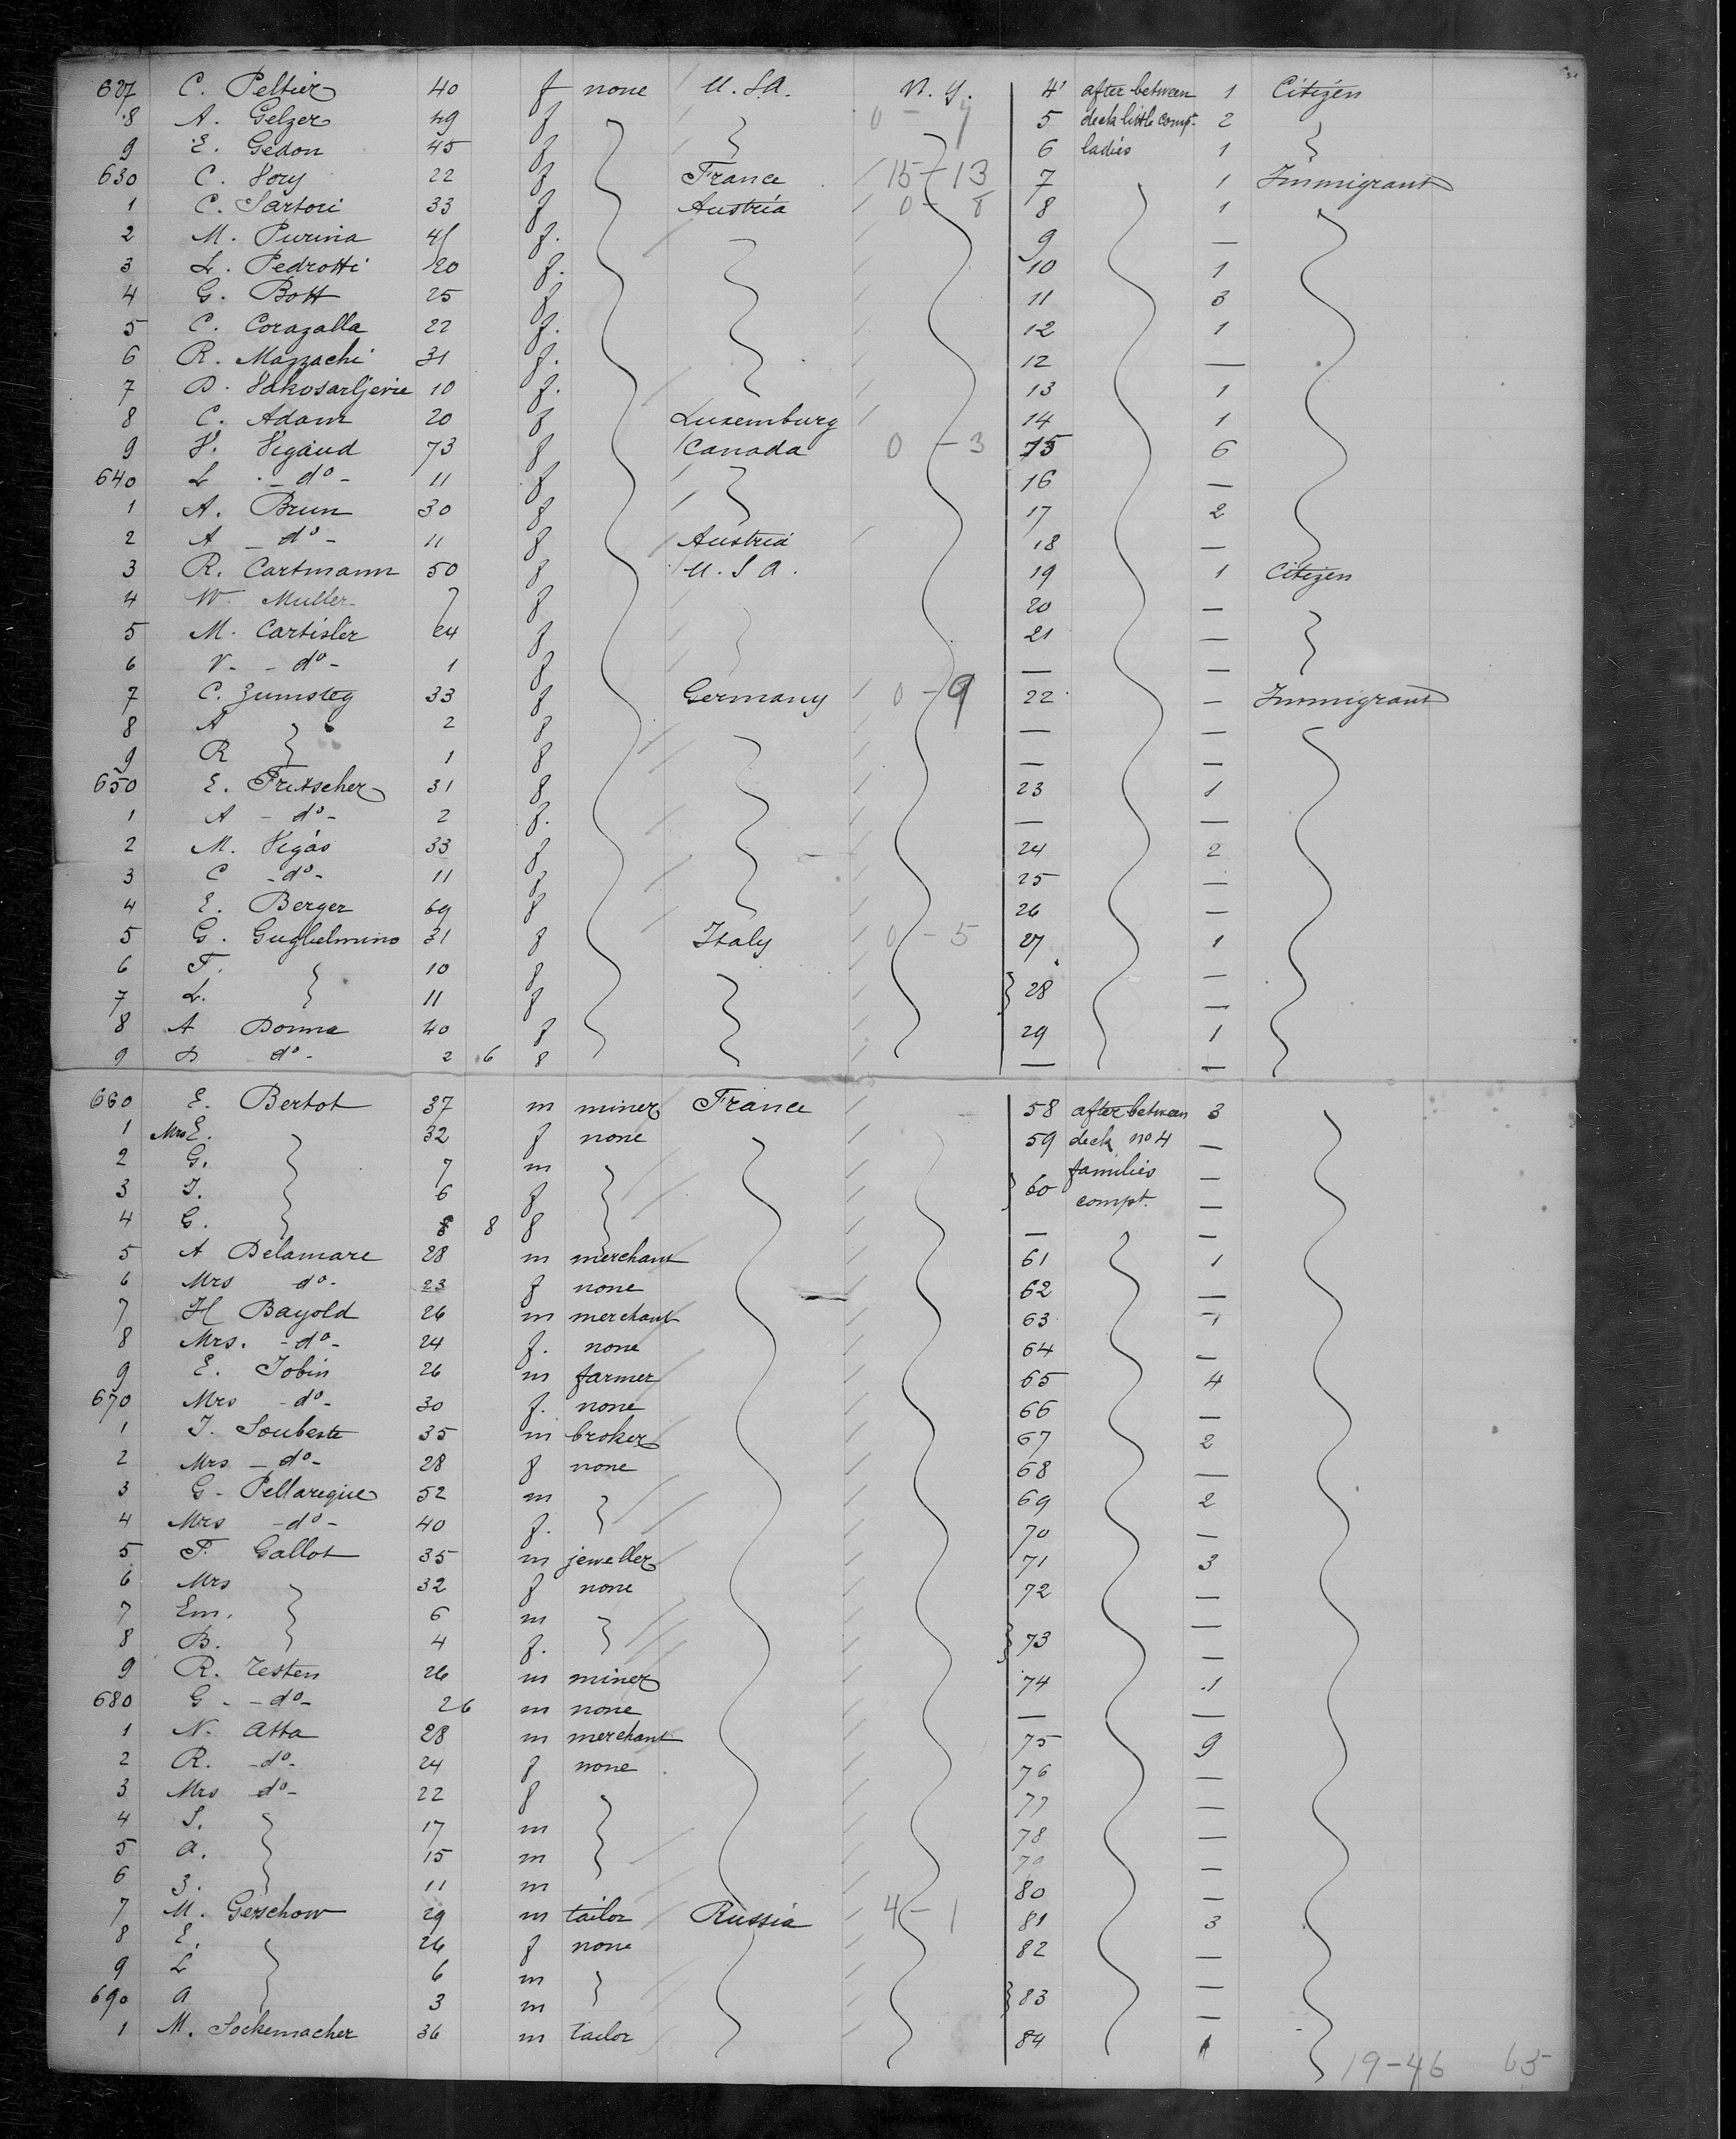 627 C. Peltier 40 f none U.S.A. N.Y. 4 after between 1 Citizen
8 A. Gelzer 49 f 0 - 7 5 deck little comp. 2
9 E. Gedon 45 f 6 ladies 1
630 C. Hory 22 f France 15-13 7 1 Immigrant
1 C. Sartori 33 f Austria 0-8 8 1
2 M. Purina f. 9 —
3 L. Pedrotti 20 f. 10 1
4 G. Bott 25 f 11 3
5 C. Corazalla 22 f. 12 1
6 R. Mazzachi 31 f. 12 —
7 D. 10 f. 13 1
8 C. Adam 20 f Luxemburg 14 1
9 V. Vigaud 73 f Canada 0-3 15 6
640 L - do - 11 f 16 —
1 A. Brun 30 f 17 2
2 A - do - 11 f Austria 18 —
3 R. Cartmann 50 f U.S.A. 19 1 Citizen
4 W. Muller 7 f 20 —
5 M. Cartisler 24 f 21 —
6 V. - do - 1 f — —
7 C. Zumsteg 33 f Germany 0-9 22 — Immigrant
8 A 2 f — —
9 R 1 f — —
650 E. Fritscher 31 f 23 1
1 A - do - 2 f. — —
2 M. Vigas 33 f 24 2
3 C - do - 11 f 25 —
4 E. Berger 69 f 26 —
5 G. Guglielmino 31 f Italy 0-5 27 1
6 F. 10 f —
7 L. 11 f 28 —
8 A Donna 40 f 29 1
9 D do - 2 6 f — —
660 E. Bertot 37 m miner France 58 after between 3
1 Mrs E. 32 f none 59 deck no 4 —
2 G. 7 m families —
3 J. 6 f 60 compt. —
4 G. 8 8 f — —
5 A Delamare 28 m merchant 61 1
6 Mrs do - 23 f none 62 —
7 H Bayold 26 m merchant 63 1
8 Mrs. - do - 24 f. none 64 —
9 E. Jobin 26 m farmer 65 4
670 Mrs - do - 30 f. none 66 —
1 J. Soubeste 35 m broker 67 2
2 Mrs - do - 28 f none 68 —
3 G. Pellaregue 52 m 69 2
4 Mrs - do - 40 f. 70 —
5 F. Gallot 35 m jeweller 71 3
6 Mrs 32 f none 72 —
7 Em. 6 m —
8 B. 4 f. 73 —
9 R. Testen 26 m miner 74 1
680 G - - do - 26 m none — —
1 N. Atta 28 m merchant 75 9
2 R. - do - 24 f none 76 —
3 Mrs do - 22 f 77 —
4 S. 17 m 78 —
5 a. 15 m 79 —
6 z. 11 m 80 —
7 M. Gerschow 29 m tailor Russia 4-1 81 3
8 E. 26 f none 82 —
9 L 6 m —
690 a 3 m 83 —
1 M. Sockemacher 36 m tailor 84 1
19-46 65